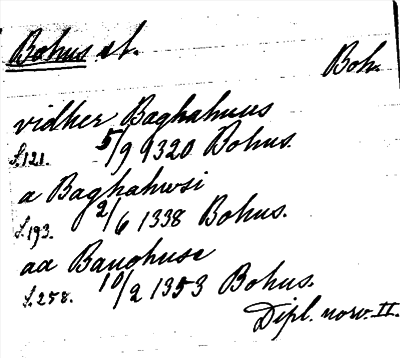 Bohus sl.
Boh.
vidher Baghahuus
s. 121. 5/9 1320 Bohus.
a Baghahwsi
s. 193. 2/6 1338 Bohus.
aa Bauohuse
s. 258. 10/2 1353 Bohus.
Dipl. norv. II.